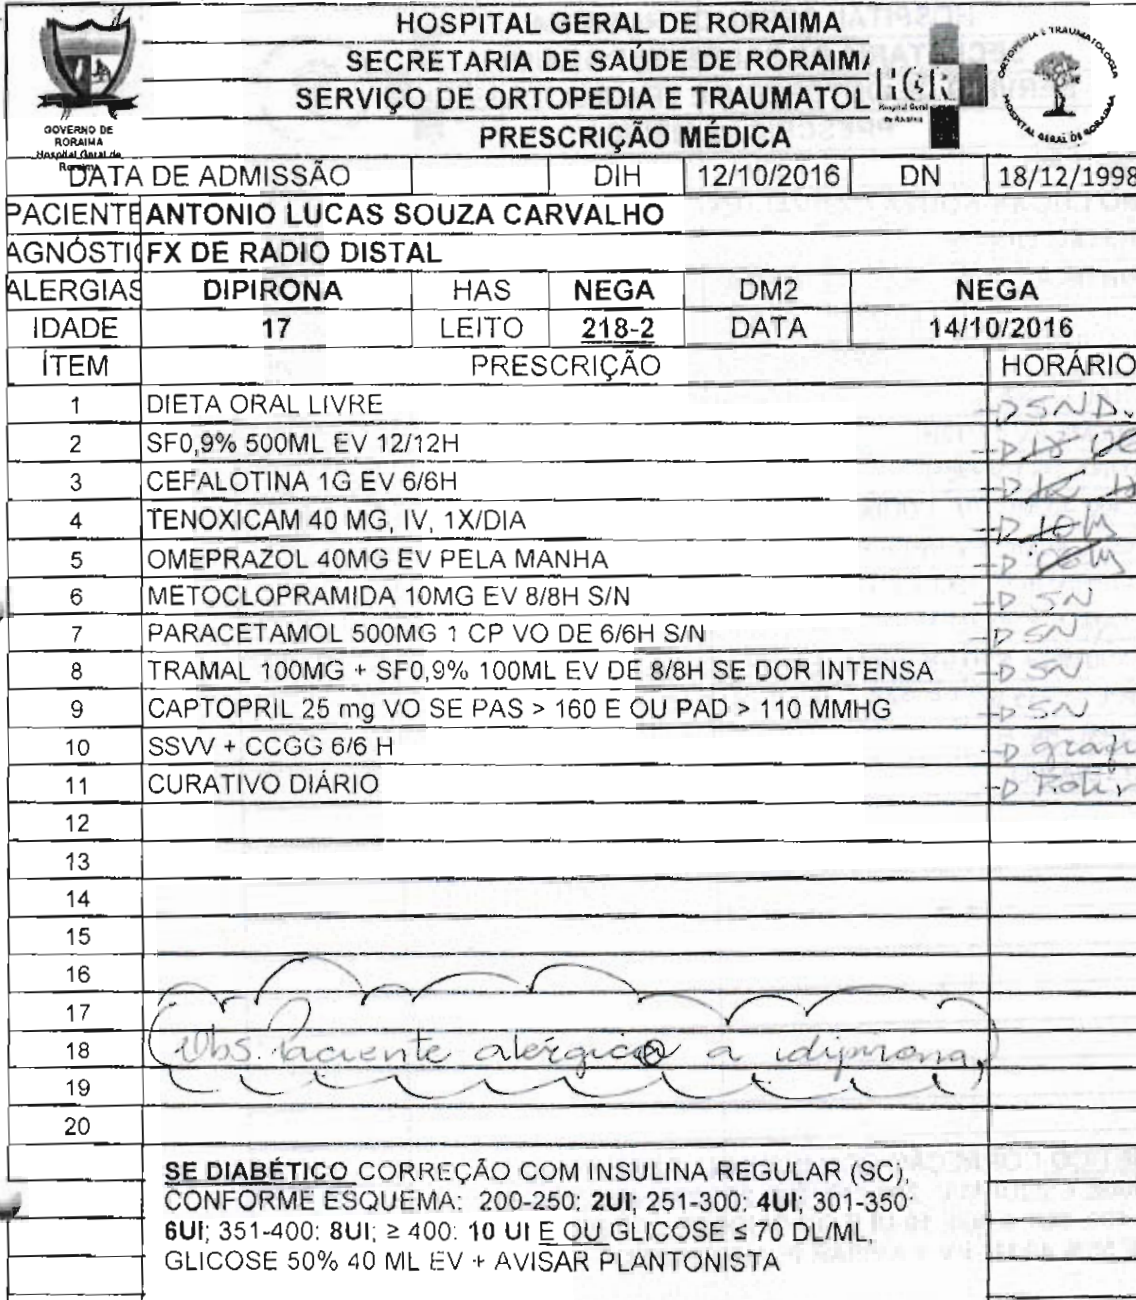 HOSPITAL GERAL DE RORAIMA
SECRETARIA DE SAÚDE DE RORAIMA
SERVIÇO DE ORTOPEDIA E TRAUMATOL
PRESCRIÇÃO MÉDICA
GOVERNO DE
RORAIMA
Hospital Geral de
Roraima
HGR
Hospital Geral
de Roraima
ORTOPEDIA E TRAUMATOLOGIA
HOSPITAL GERAL DE RORAIMA
DATA DE ADMISSÃO DIH 12/10/2016 DN 18/12/1998
PACIENTE ANTONIO LUCAS SOUZA CARVALHO
AGNÓSTIC FX DE RADIO DISTAL
ALERGIAS DIPIRONA HAS NEGA DM2 NEGA
IDADE 17 LEITO 218-2 DATA 14/10/2016
ÍTEM PRESCRIÇÃO HORÁRIO
1 DIETA ORAL LIVRE SND.
2 SF0,9% 500ML EV 12/12H 18
3 CEFALOTINA 1G EV 6/6H
4 TENOXICAM 40 MG, IV, 1X/DIA 10h
5 OMEPRAZOL 40MG EV PELA MANHA 06h
6 METOCLOPRAMIDA 10MG EV 8/8H S/N SN
7 PARACETAMOL 500MG 1 CP VO DE 6/6H S/N SN
8 TRAMAL 100MG + SF0,9% 100ML EV DE 8/8H SE DOR INTENSA SN
9 CAPTOPRIL 25 mg VO SE PAS > 160 E OU PAD > 110 MMHG SN
10 SSVV + CCGG 6/6 H
11 CURATIVO DIÁRIO
12
13
14
15
16
17
18 Obs. Paciente alérgico a dipirona,
19
20
SE DIABÉTICO CORREÇÃO COM INSULINA REGULAR (SC),
CONFORME ESQUEMA: 200-250: 2UI; 251-300: 4UI; 301-350:
6UI; 351-400: 8UI; ≥ 400: 10 UI E OU GLICOSE ≤ 70 DL/ML,
GLICOSE 50% 40 ML EV + AVISAR PLANTONISTA